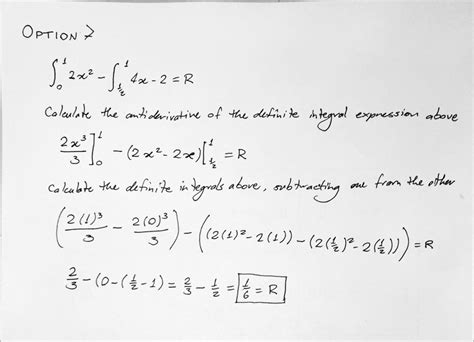 OPTION 2
∫₀¹ 2x² - ∫_{1/2}^{1} 4x - 2 = R
Calculate the antiderivative of the definite integral expression above
2x³/3 ]₀¹ - (2x² - 2x) [_{1/2}^{1} = R
Calculate the definite integrals above, subtracting one from the other
(2(1)³/3 - 2(0)³/3) - ((2(1)² - 2(1)) - (2(1/2)² - 2(1/2))) = R
2/3 - (0 - (1/2 - 1) = 2/3 - 1/2 = 1/6 = R